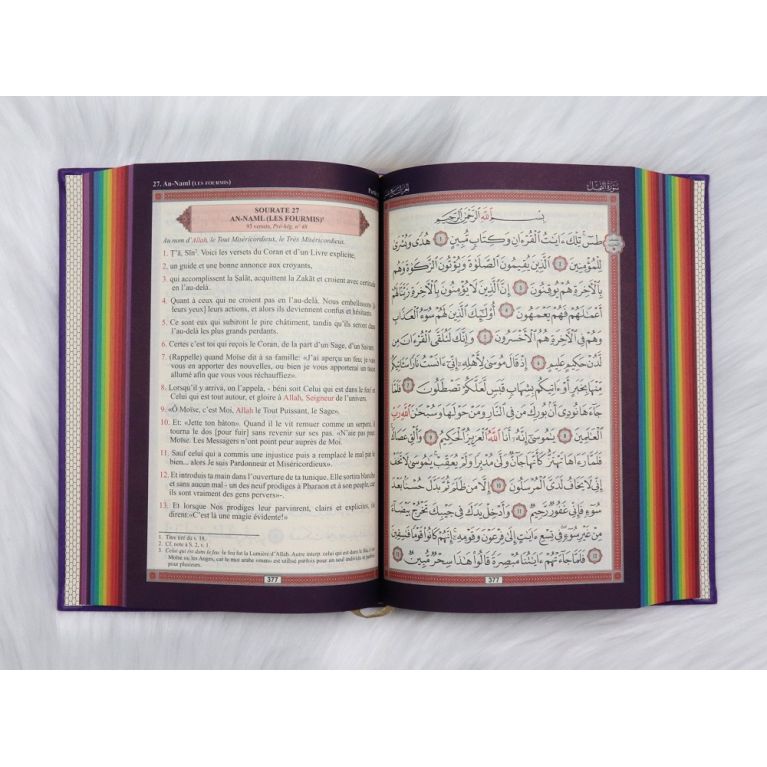 27. An-Naml (LES FOURMIS)
SOURATE 27
AN-NAML (LES FOURMIS)¹
93 versets, Pré-hég. n° 48
Au nom d'Allah, le Tout Miséricordieux, le Très Miséricordieux.
1. Ṭā, Sīn². Voici les versets du Coran et d'un Livre explicite,
2. un guide et une bonne annonce aux croyants,
3. qui accomplissent la Ṣalāt, acquittent la Zakāt et croient avec certitude
en l'au-delà.
4. Quant à ceux qui ne croient pas en l'au-delà. Nous embellissons [à
leurs yeux] leurs actions, et alors ils deviennent confus et hésitants.
5. Ce sont eux qui subiront le pire châtiment, tandis qu'ils seront dans
l'au-delà les plus grands perdants.
6. Certes c'est toi qui reçois le Coran, de la part d'un Sage, d'un Savant.
7. (Rappelle) quand Moïse dit à sa famille: «J'ai aperçu un feu; je vais
vous en apporter des nouvelles, ou bien je vous apporterai un tison
allumé afin que vous vous réchauffiez».
8. Lorsqu'il y arriva, on l'appela, - béni soit Celui qui est dans le feu³ et
Celui qui est tout autour, et gloire à Allah, Seigneur de l'univers.
9. «Ô Moïse, c'est Moi, Allah le Tout Puissant, le Sage».
10. Et: «Jette ton bâton». Quand il le vit remuer comme un serpent, il
tourna le dos [pour fuir] sans revenir sur ses pas. «N'aie pas peur,
Moïse. Les Messagers n'ont point peur auprès de Moi.
11. Sauf celui qui a commis une injustice puis a remplacé le mal par le
bien... alors Je suis Pardonneur et Miséricordieux».
12. Et introduis ta main dans l'ouverture de ta tunique. Elle sortira blanche
et sans aucun mal - un des neuf prodiges à Pharaon et à son peuple, car
ils sont vraiment des gens pervers»-.
13. Et lorsque Nos prodiges leur parvinrent, clairs et explicites, ils
dirent:«C'est là une magie évidente!»
1. Titre tiré du v. 18.
2. Cf. note à S. 2, v. 1.
3. Celui qui est dans le feu: le feu fut la Lumière d'Allah. Autre interp. celui qui est dans le feu:
Moïse ou les Anges, car le mot arabe «man» est utilisé parfois pour un seul individu et parfois
pour plusieurs.
377
سورة النمل
بِسْمِ اللَّهِ الرَّحْمَٰنِ الرَّحِيمِ
طسٓ ۚ تِلْكَ ءَايَٰتُ الْقُرْءَانِ وَكِتَابٍ مُّبِينٍ ١ هُدًى وَبُشْرَىٰ
لِلْمُؤْمِنِينَ ٢ الَّذِينَ يُقِيمُونَ الصَّلَوٰةَ وَيُؤْتُونَ الزَّكَوٰةَ وَهُم
بِالْءَاخِرَةِ هُمْ يُوقِنُونَ ٣ إِنَّ الَّذِينَ لَا يُؤْمِنُونَ بِالْءَاخِرَةِ زَيَّنَّا لَهُمْ
أَعْمَٰلَهُمْ فَهُمْ يَعْمَهُونَ ٤ أُولَٰئِكَ الَّذِينَ لَهُمْ سُوٓءُ الْعَذَابِ
وَهُمْ فِي الْءَاخِرَةِ هُمُ الْأَخْسَرُونَ ٥ وَإِنَّكَ لَتُلَقَّى الْقُرْءَانَ مِن
لَّدُنْ حَكِيمٍ عَلِيمٍ ٦ إِذْ قَالَ مُوسَىٰ لِأَهْلِهِ إِنِّي ءَانَسْتُ نَارًا سَـَٔاتِيكُم
مِّنْهَا بِخَبَرٍ أَوْ ءَاتِيكُم بِشِهَابٍ قَبَسٍ لَّعَلَّكُمْ تَصْطَلُونَ ٧ فَلَمَّا
جَآءَهَا نُودِيَ أَنۢ بُورِكَ مَن فِي النَّارِ وَمَنْ حَوْلَهَا وَسُبْحَٰنَ اللَّهِ رَبِّ
الْعَٰلَمِينَ ٨ يَٰمُوسَىٰٓ إِنَّهُۥٓ أَنَا اللَّهُ الْعَزِيزُ الْحَكِيمُ ٩ وَأَلْقِ عَصَاكَ ۚ
فَلَمَّا رَءَاهَا تَهْتَزُّ كَأَنَّهَا جَآنٌّ وَلَّىٰ مُدْبِرًا وَلَمْ يُعَقِّبْ ۚ يَٰمُوسَىٰ لَا تَخَفْ
إِنِّي لَا يَخَافُ لَدَيَّ الْمُرْسَلُونَ ١٠ إِلَّا مَن ظَلَمَ ثُمَّ بَدَّلَ حُسْنًۢا بَعْدَ
سُوٓءٍ فَإِنِّي غَفُورٌ رَّحِيمٌ ١١ وَأَدْخِلْ يَدَكَ فِي جَيْبِكَ تَخْرُجْ بَيْضَآءَ
مِنْ غَيْرِ سُوٓءٍ ۖ فِي تِسْعِ ءَايَٰتٍ إِلَىٰ فِرْعَوْنَ وَقَوْمِهِۦٓ ۚ إِنَّهُمْ كَانُوا قَوْمًا فَٰسِقِينَ
١٢ فَلَمَّا جَآءَتْهُمْ ءَايَٰتُنَا مُبْصِرَةً قَالُوا هَٰذَا سِحْرٌ مُّبِينٌ ١٣
377